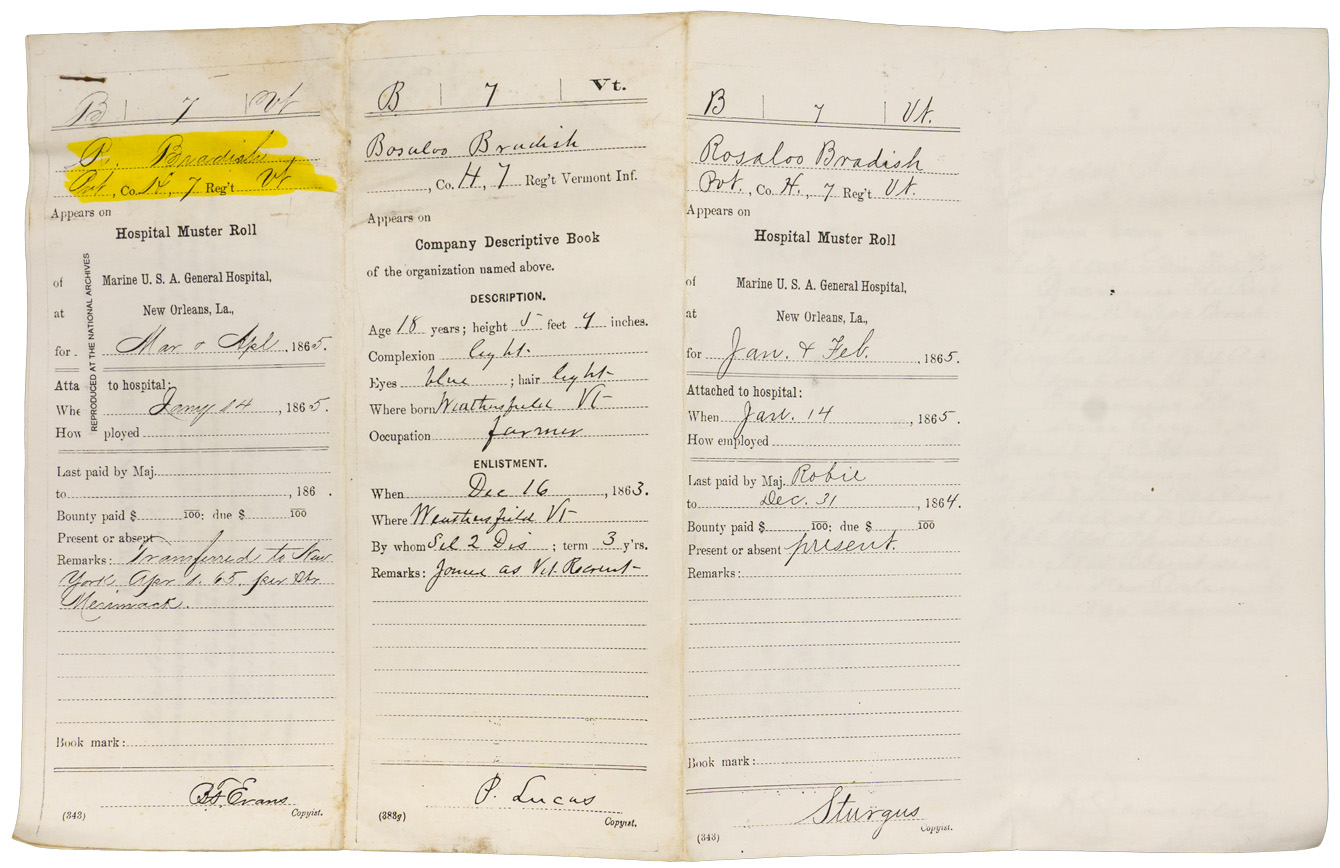 B | 7 | Vt
R. Bradish
Pvt., Co. H, 7 Reg't Vt
Appears on
Hospital Muster Roll
of Marine U. S. A. General Hospital,
at New Orleans, La.,
for Mar & Apl, 1865.
Atta to hospital:
Whe Jany 14, 1865.
How ployed
REPRODUCED AT THE NATIONAL ARCHIVES
Last paid by Maj.
to , 186 .
Bounty paid $ 100; due $ 100
Present or absent
Remarks: Transferred to New
York Apr 1. 65. per Str
Merrimack.
Book mark:
B.F. Evans
(343) Copyist.
B | 7 | Vt.
Bosaloo Bradish
, Co. H, 7 Reg't Vermont Inf.
Appears on
Company Descriptive Book
of the organization named above.
DESCRIPTION.
Age 18 years; height 5 feet 7 inches.
Complexion light.
Eyes blue; hair light
Where born Weathersfield Vt
Occupation farmer
ENLISTMENT.
When Dec 16, 1863.
Where Weathersfield Vt
By whom Sel 2 Dis; term 3 y'rs.
Remarks: Joined as Vet Recruit
P. Lucas
(383g) Copyist.
B | 7 | Vt.
Rosaloo Bradish
Pvt., Co. H., 7 Reg't Vt.
Appears on
Hospital Muster Roll
of Marine U. S. A. General Hospital,
at New Orleans, La.,
for Jan. & Feb., 1865.
Attached to hospital:
When Jan. 14, 1865.
How employed
Last paid by Maj. Robie
to Dec. 31, 1864.
Bounty paid $ 100; due $ 100
Present or absent present.
Remarks:
Book mark:
Sturgus
(343) Copyist.